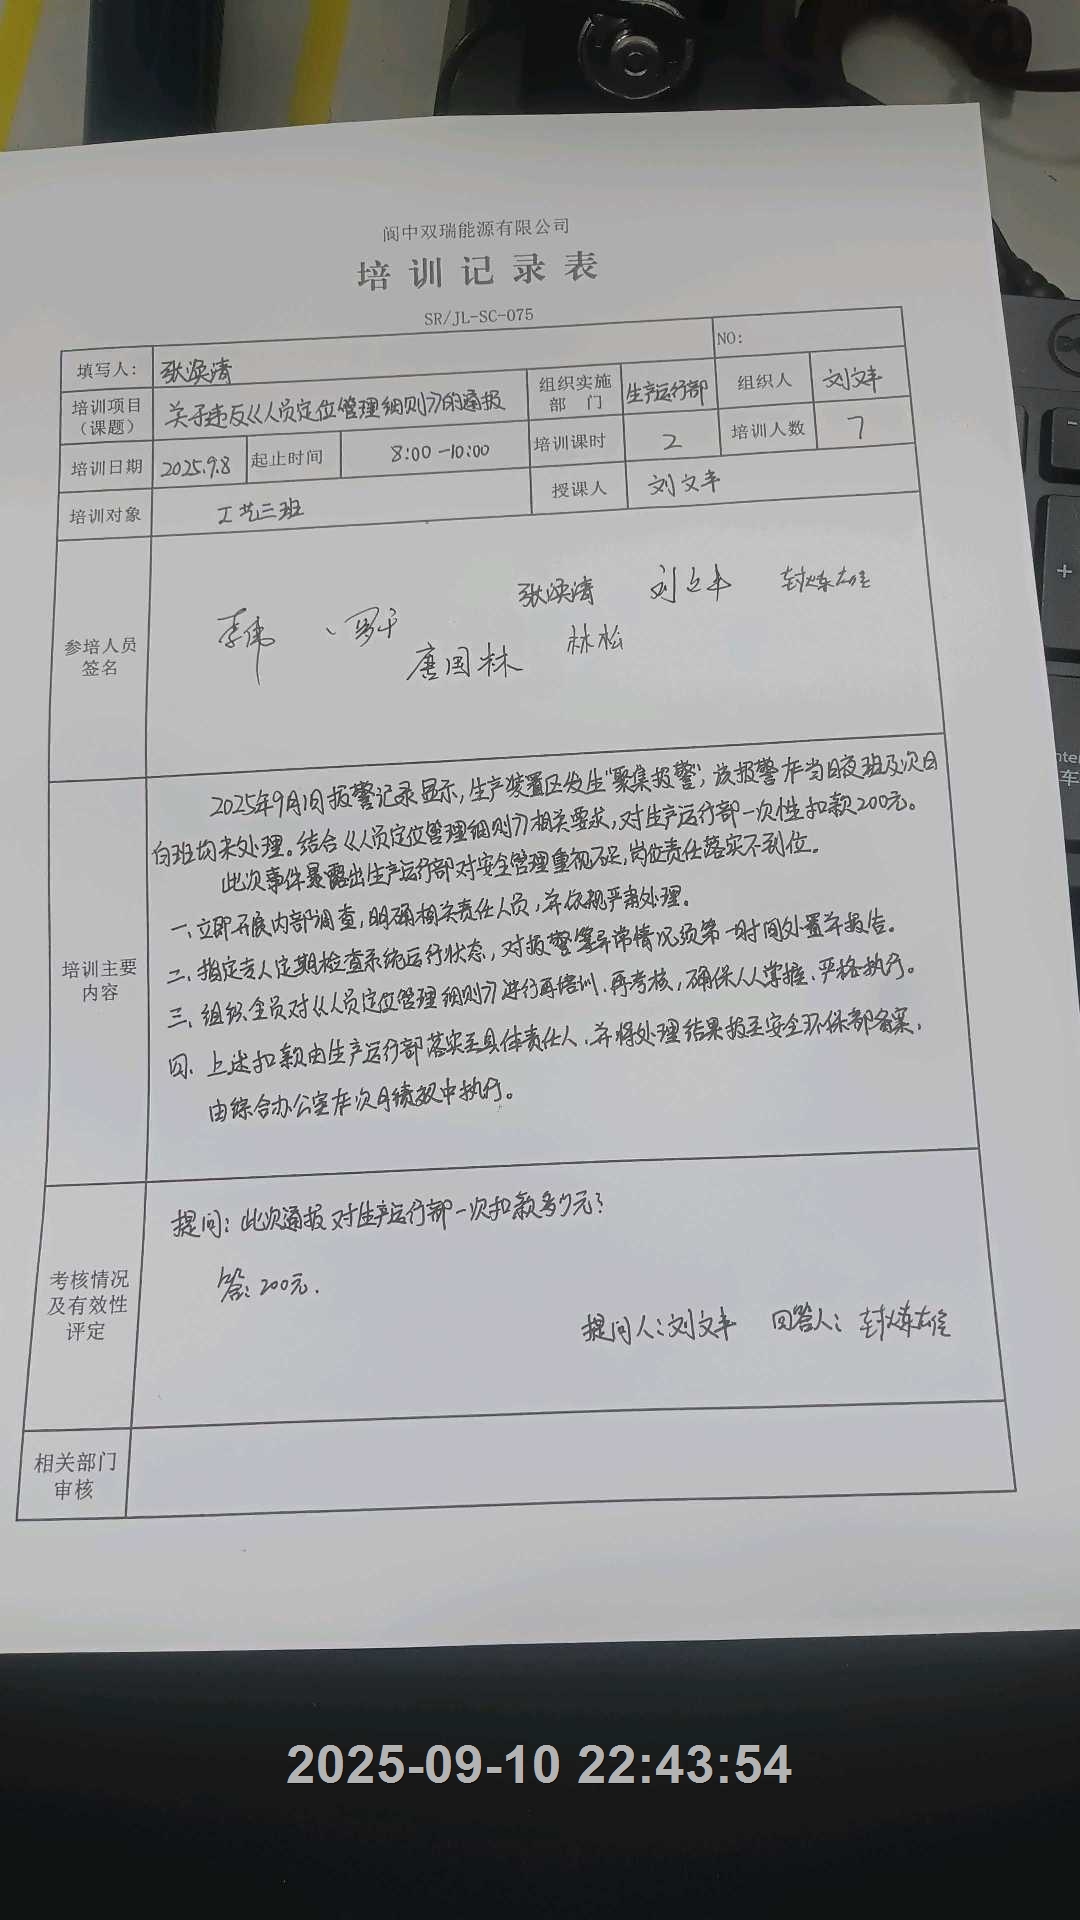 阆中双瑞能源有限公司
培训记录表
SR/JL-SC-075
填写人： 张涣清 NO:
培训项目（课题） 关于违反《人员定位管理细则》的通报 组织实施部门 生产运行部 组织人 刘文丰
培训日期 2025.9.8 起止时间 8:00-10:00 培训课时 2 培训人数 7
培训对象 工艺三班 授课人 刘文丰
参培人员签名
张涣清 刘文丰
李伟 罗千 唐国林 林松
培训主要内容
2025年9月1日报警记录显示，生产装置区发生“聚集报警”，该报警在当日夜班及次日
白班均未处理。结合《人员定位管理细则》相关要求，对生产运行部一次性扣款200元。
此次事件暴露出生产运行部对安全管理重视不足，岗位责任落实不到位。
一、立即开展内部调查，明确相关责任人员，并依规严肃处理。
二、指定专人定期检查系统运行状态，对报警等异常情况须第一时间处置并报告。
三、组织全员对《人员定位管理细则》进行再培训、再考核，确保人人掌握、严格执行。
四、上述扣款由生产运行部落实至具体责任人，并将处理结果报至安全环保部备案，
由综合办公室在次月绩效中执行。
考核情况及有效性评定
提问：此次通报对生产运行部一次扣款多少元？
答：200元.
提问人：刘文丰 回答人：
相关部门审核
2025-09-10 22:43:54